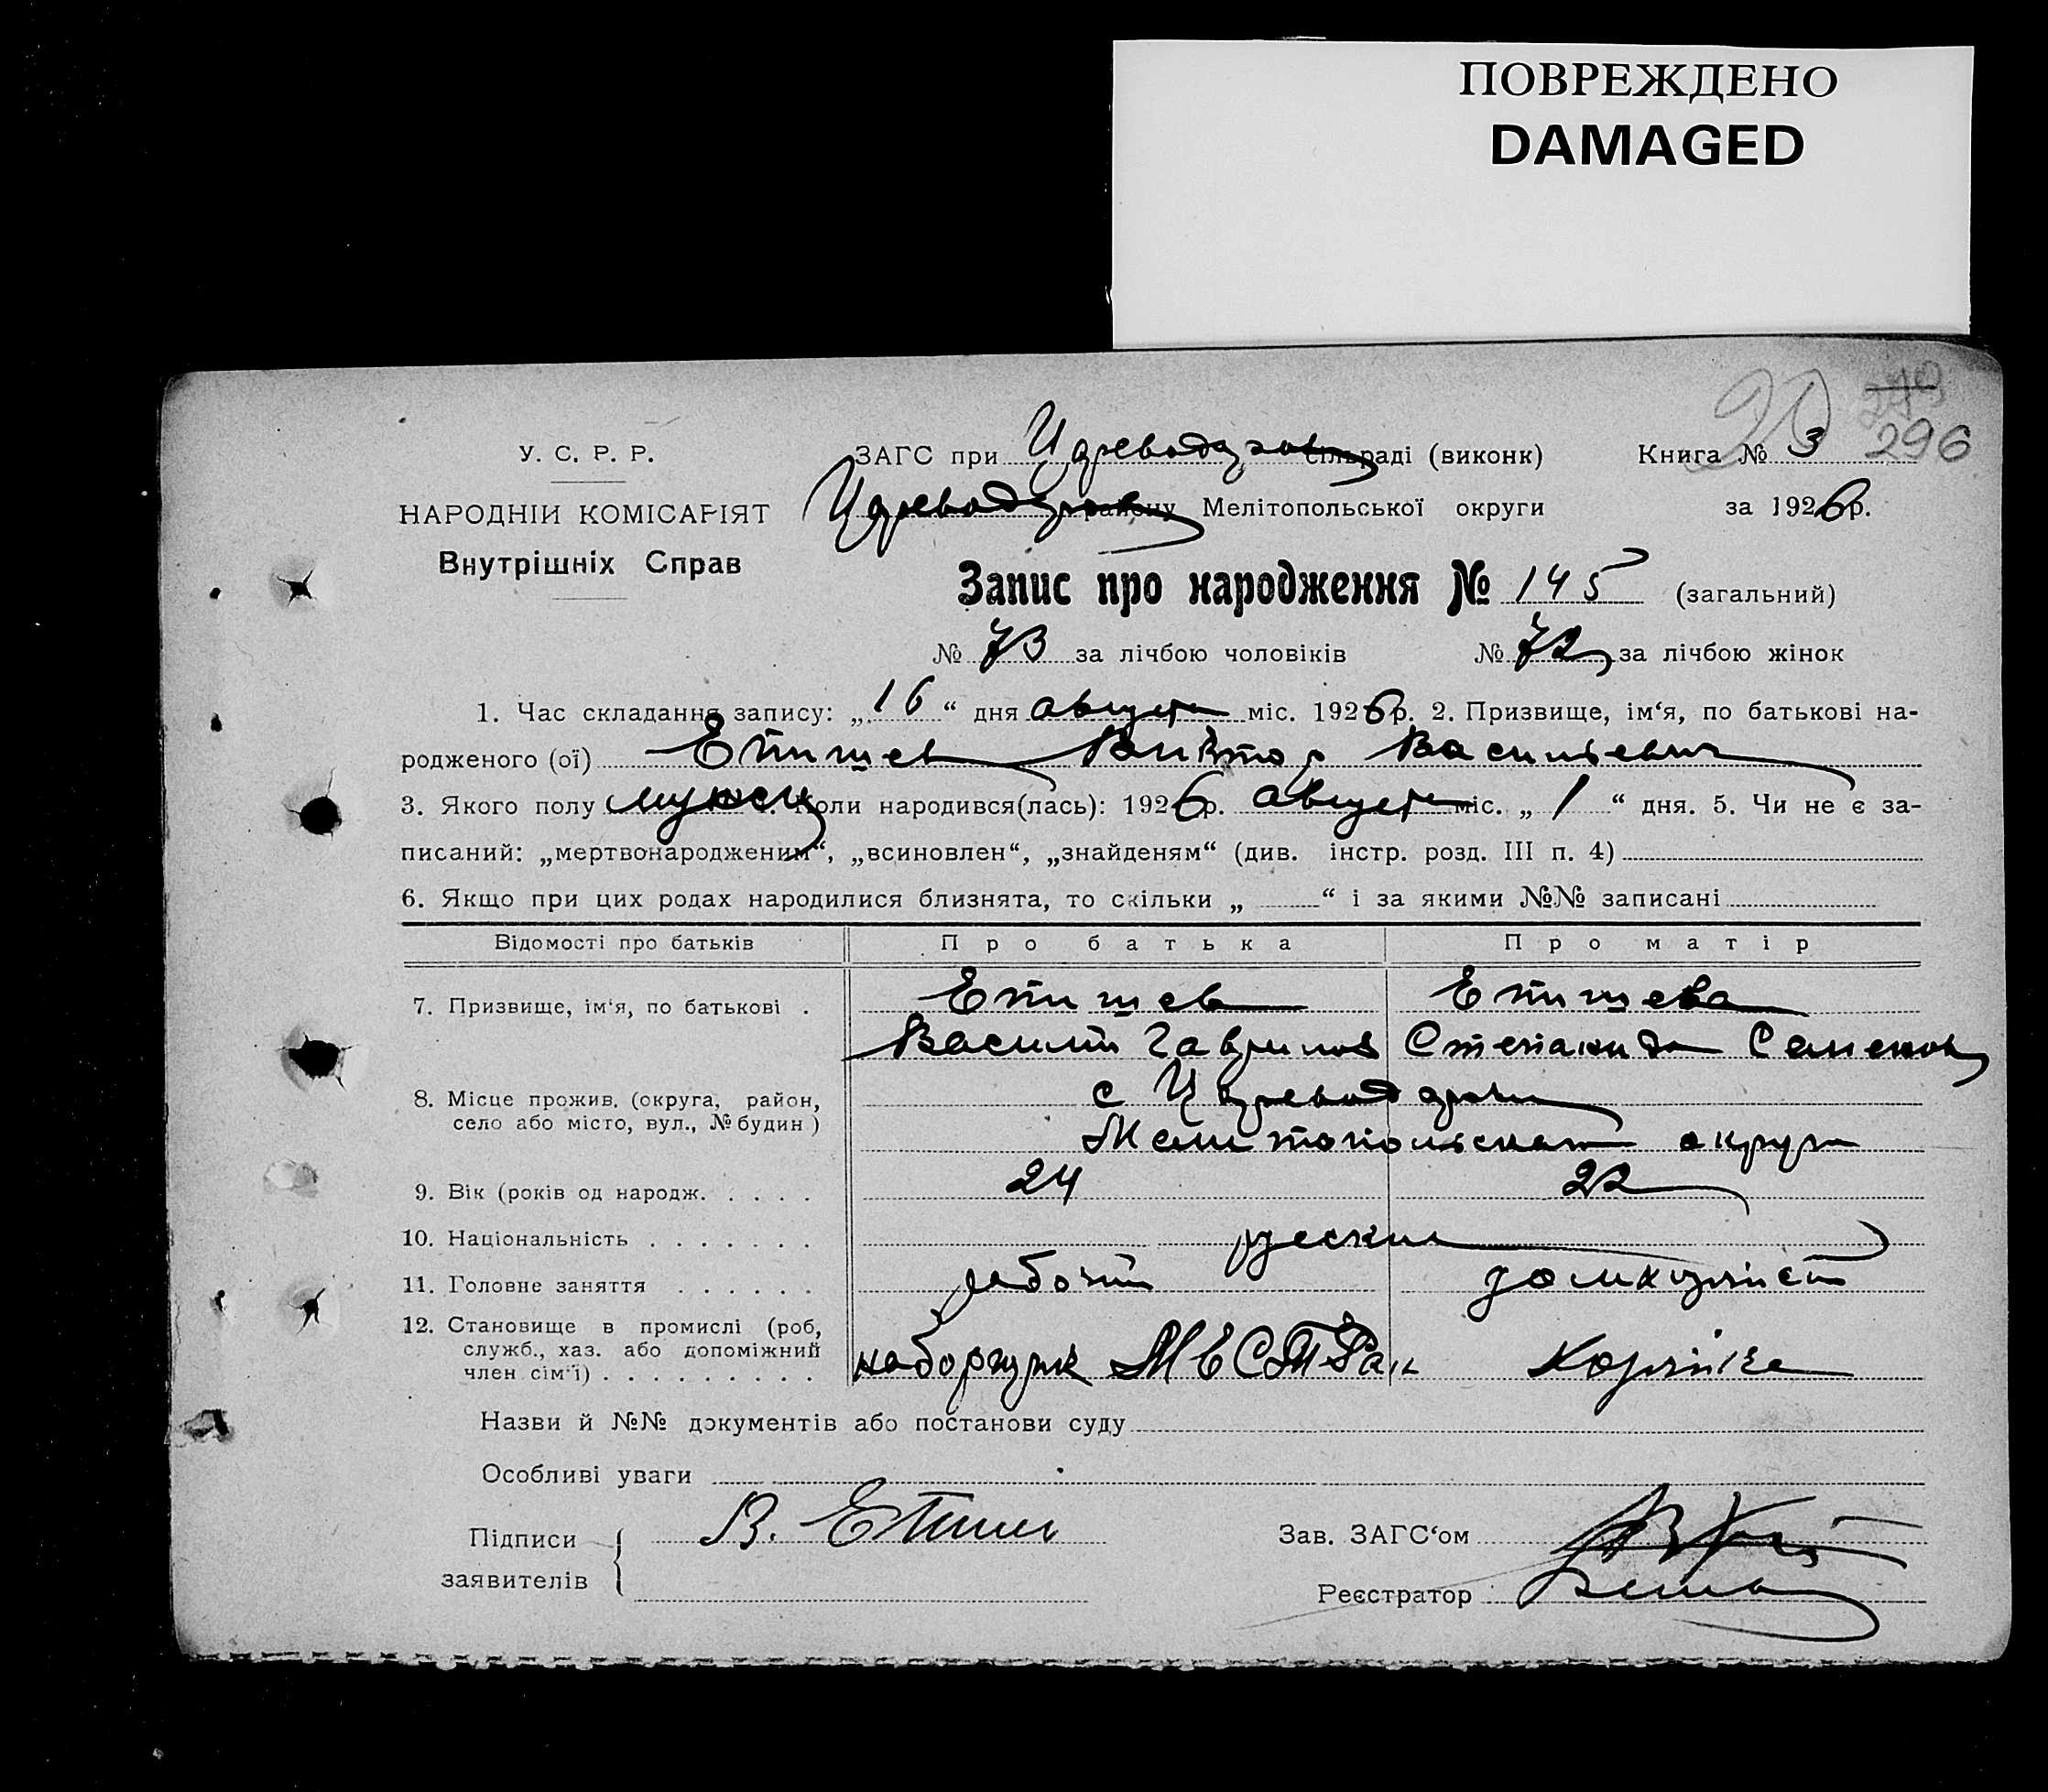 ПОВРЕЖДЕНО
DAMAGED
296
У. С. Р. Р.
ЗАГС при Цареводаровск сільраді (виконк) Книга № 3
НАРОДНІЙ КОМІСАРІЯТ
району Мелітопольської округи за 1926 р.
Внутрішніх Справ
Запис про народження № 145 (загальний)
№ 73 за лічбою чоловіків № 72 за лічбою жінок
1. Час складання запису: „16“ дня августа міс. 1926 р. 2. Призвище, ім‘я, по батькові на-
родженого (ої) Епишев Виктор Васильевич
3. Якого полу мужск 4. Коли народився(лась): 1926 р. августа міс. „1“ дня. 5. Чи не є за-
писаний: „мертвонародженим“, „всиновлен“, „знайденям“ (див. інстр. розд. III п. 4)
6. Якщо при цих родах народилися близнята, то скільки „ “ і за якими №№ записані
Відомості про батьків Про батька Про матір
7. Призвище, ім‘я, по батькові . Епишев Епишева
Василий Гаврилов Степанида Семенов
8. Місце прожив. (округа, район, с
село або місто, вул., № будин) Мелитопольской округи
9. Вік (років од народж. . . . . 24 22
10. Національність . . . . . . . русские
11. Головне заняття . . . . . . рабочий домхозяйст
12. Становище в промислі (роб,
служб., хаз. або допоміжний наборщик
член сім‘ї) . . . . . . . . .
Назви й №№ документів або постанови суду
Особливі уваги
Підписи В. Епишев Зав. ЗАГС‘ом
заявителів Реєстратор